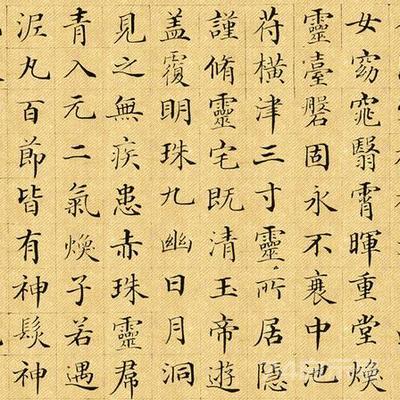 女窈窕翳霄暉重堂煥
靈臺磐固永不衰中池
苻橫津三寸靈所居隱
謹脩靈宅既清玉帝遊
蓋覆明珠九幽日月洞
見之無疾患赤珠靈帬
青入元二氣煥子若遇
泥丸百節皆有神髮神